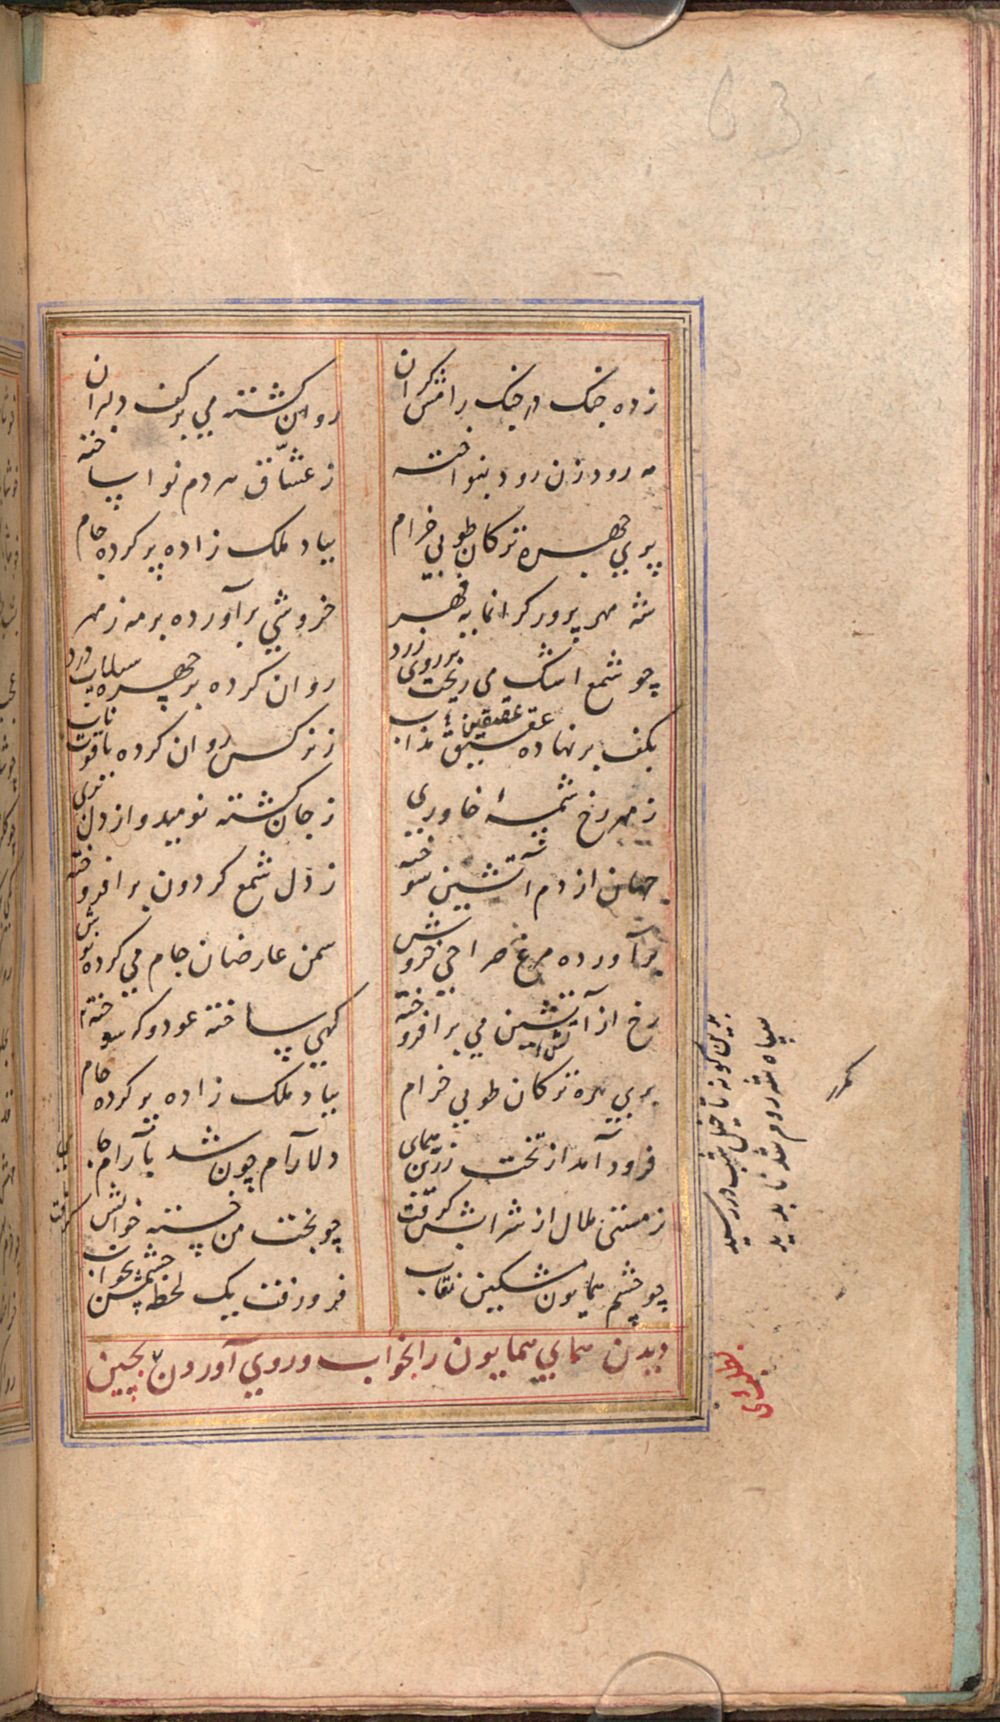 63
زده چنک در چنک رامشکران
روان کشته می برکف دلبران
مه رود زن رود بنواخته
ز عشّاق هر دم نوا ساخته
پری چهره ترکان طوبی خرام
بیاد ملک زاده پر کرده جام
شه مهر پرور کرانمایه چهر
خروشی برآورده بر مه ز مهر
چو شمع اشک می ریخت بر روی زرد
روان کرده بر چهره سیلاب درد
بکف بر نهاده عقیق مذاب
عقیقین
ز نرکس روان کرده یاقوت ناب
ز مهر رخ شمسهٔ خاوری
ز جان کشته نومید و از دل بری
جهان از دم آتشین سوخته
ز دل شمع کردون برافروخته
برآورده مرغ صراحی خروش
سمن عارضان جام می کرده نوش
رخ از آتشین می برافروخته
کهی ساخته عود و که سوخته
پری چهره ترکان طوبی خرام
بیاد ملک زاده پر کرده جام
فرود آمد از تخت زرین همای
دلارام چون شد بآرام جای
ز مستی ملال از شرابش کرفت
چو بخت من خسته خوابش کرفت
چو چشم همایون مشکین نقاب
فرو رفت یک لحظه چشمش بخواب
دیدن همای همایون را بخواب و روی آوردن بچین
بدین کونه تا خیل شب در رسید
سپاه شه روم شد ناپدید